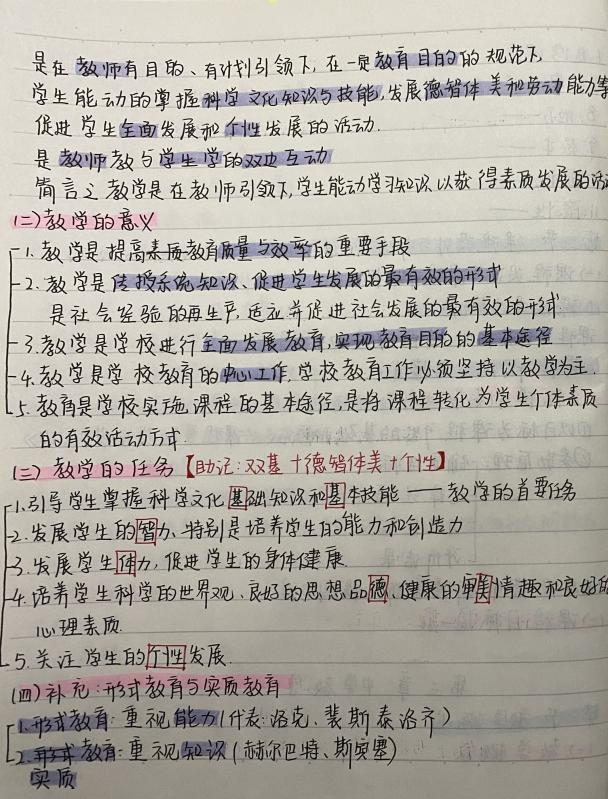 是在教师有目的、有计划引领下,在一定教育目的的规范下,
学生能动的掌握科学文化知识与技能,发展德智体美和劳动能力等
促进学生全面发展和个性发展的活动.
是教师教与学生学的双边互动
简言之教学是在教师引领下,学生能动学习知识以获得素质发展的活
(二)教学的意义
1.教学是提高素质教育质量与效率的重要手段
2.教学是传授系统知识、促进学生发展的最有效的形式
是社会经验的再生产,适应并促进社会发展的最有效的形式
3.教学是学校进行全面发展教育,实现教育目的的基本途径
4.教学是学校教育的中心工作,学校教育工作必须坚持以教学为主.
5.教育是学校实施课程的基本途径,是将课程转化为学生个体素质
的有效活动方式.
(三)教学的任务【助记:双基+德智体美+个性】
1.引导学生掌握科学文化基础知识和基本技能——教学的首要任务
2.发展学生的智力、特别是培养学生的能力和创造力
3.发展学生体力,促进学生的身体健康.
4.培养学生科学的世界观、良好的思想品德、健康的审美情趣和良好的
心理素质.
5.关注学生的个性发展.
(四)补充:形式教育与实质教育
1.形式教育:重视能力(代表:洛克、裴斯泰洛齐)
2.形式教育:重视知识(赫尔巴特、斯宾塞)
实质